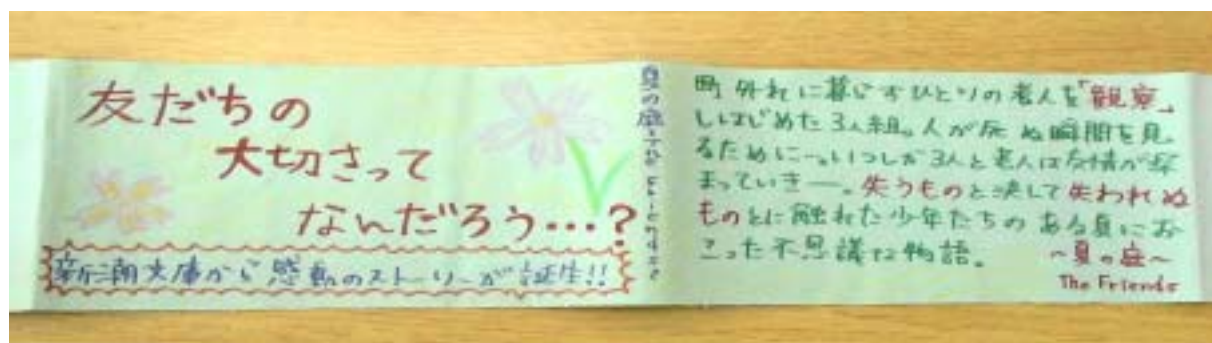 友だちの
大切さって
なんだろう…?
新潮文庫から感動のストーリーが誕生!!
町外れに暮らすひとりの老人を「観察」
しはじめた3人組。人が死ぬ瞬間を見
るために―。いつしか3人と老人は友情が深
まっていき―。失うものと決して失われぬ
ものとに触れた少年たちのある夏にお
こった不思議な物語。
~夏の庭~
The Friends